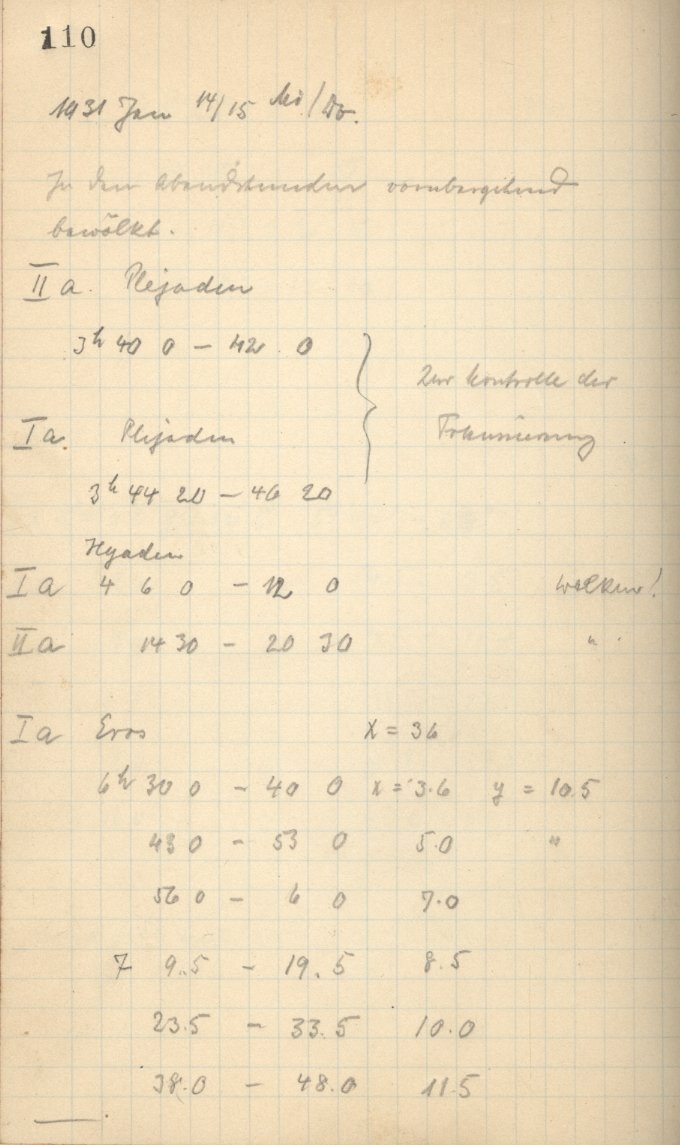 110
1931 Jan 14/15 Mi/Do.
In den Abendstunden vorübergehend
bewölkt.
II a. Plejaden
3h 40 0 – 42 0
Zur Kontrolle der
Fokussierung
I a. Plejaden
3h 44 20 – 46 20
Hyaden
I a 4 6 0 – 12 0 Wolken!
II a 14 30 – 20 30 "
I a Eros x = 36
6h 30 0 – 40 0 x = 3.6 y = 10.5
43 0 – 53 0 5.0 "
56 0 – 6 0 7.0
7 9.5 – 19.5 8.5
23.5 – 33.5 10.0
38.0 – 48.0 11.5